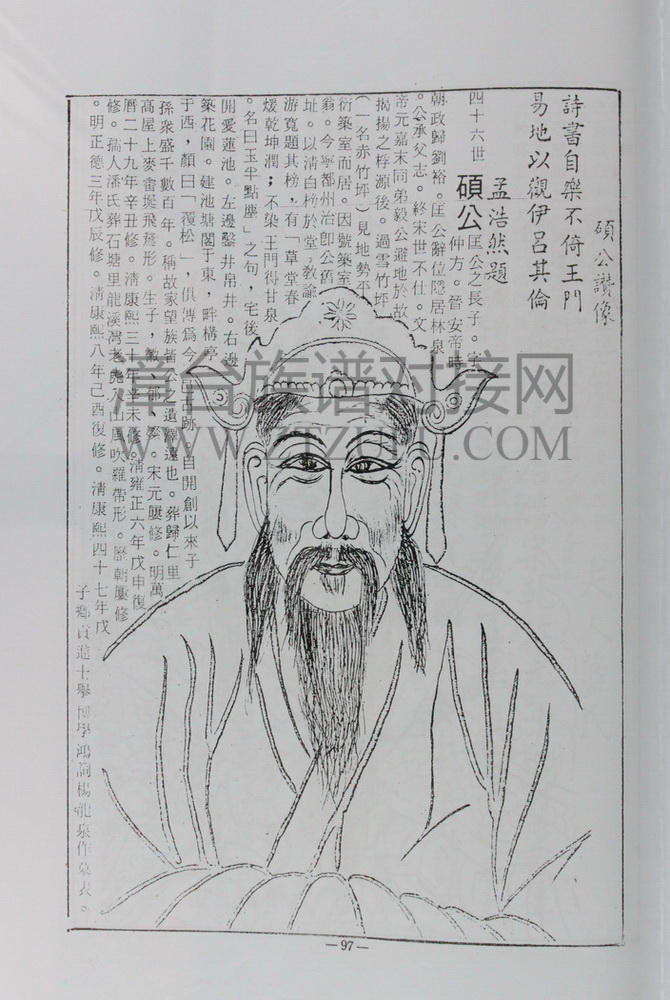 碩公讚像
詩書自樂不倚王門
易地以觀伊呂其倫
孟浩然題
四十六世 碩公 匡公之長子。字
仲方。晉安帝時
朝政歸劉裕。匡公辭位隱居林泉
。公承父志。終宋世不仕。文
帝元嘉末同弟毅公避地於故
揭揚之桴源後。過雪竹坪
(一名赤竹坪)見地勢平
衍築室而居。因號築室
翁。今寧都州治卽公舊
址。以淸白榜於堂,敎諭
游寬題其榜,有「草堂春
煖乾坤潤;不染王門得甘泉
。名曰玉半點塵」之句,宅後
開愛蓮池。左邊鑿井帛井。右邊
築花園。建池塘閣于東,畔構亭
于酉,顏曰「覆松」,俱傳爲今
古跡。自開創以來子
孫衆盛千數百年。稱故家望族皆公之遺澤遠也。葬歸仁里
高屋上麥畬
飛
形。生子,
宋元屢修。明萬
曆二十九年辛丑修。淸康熙三十年辛未修。淸雍正六年戊申復
修。孺人潘氏葬石塘里龍溪灣老虎
山風吹羅帶形。歷朝屢修
。明正德三年戊辰修。淸康熙八年己酉復修。淸康熙四十七年戊
子鄉貢進士舉博學鴻詞楊龍泉作墓表。
清台族谱对接网
WWW.ZTZUPU.COM
—97—